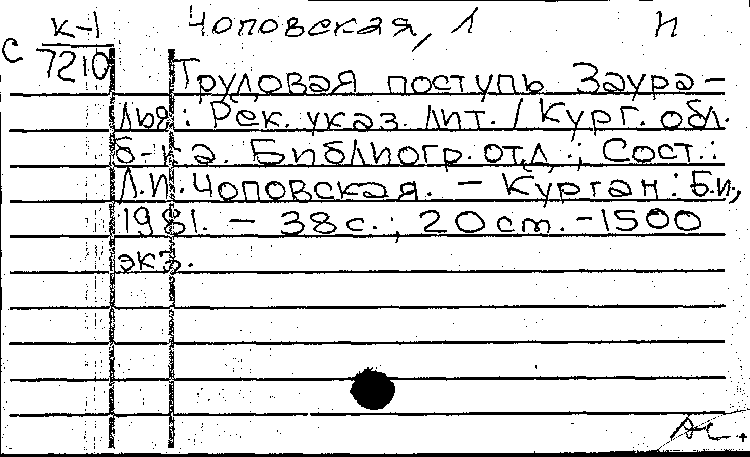 к-1 Чоповская, Л П
С 7210
Трудовая поступь Заура-
лья: Рек. указ. лит. / Кург. обл.
б-ка. Библиогр. отд.; Сост.:
Л.И. Чоповская. - Курган: Б.и.,
1981. - 38 с.; 20 ст. - 1500
экз.